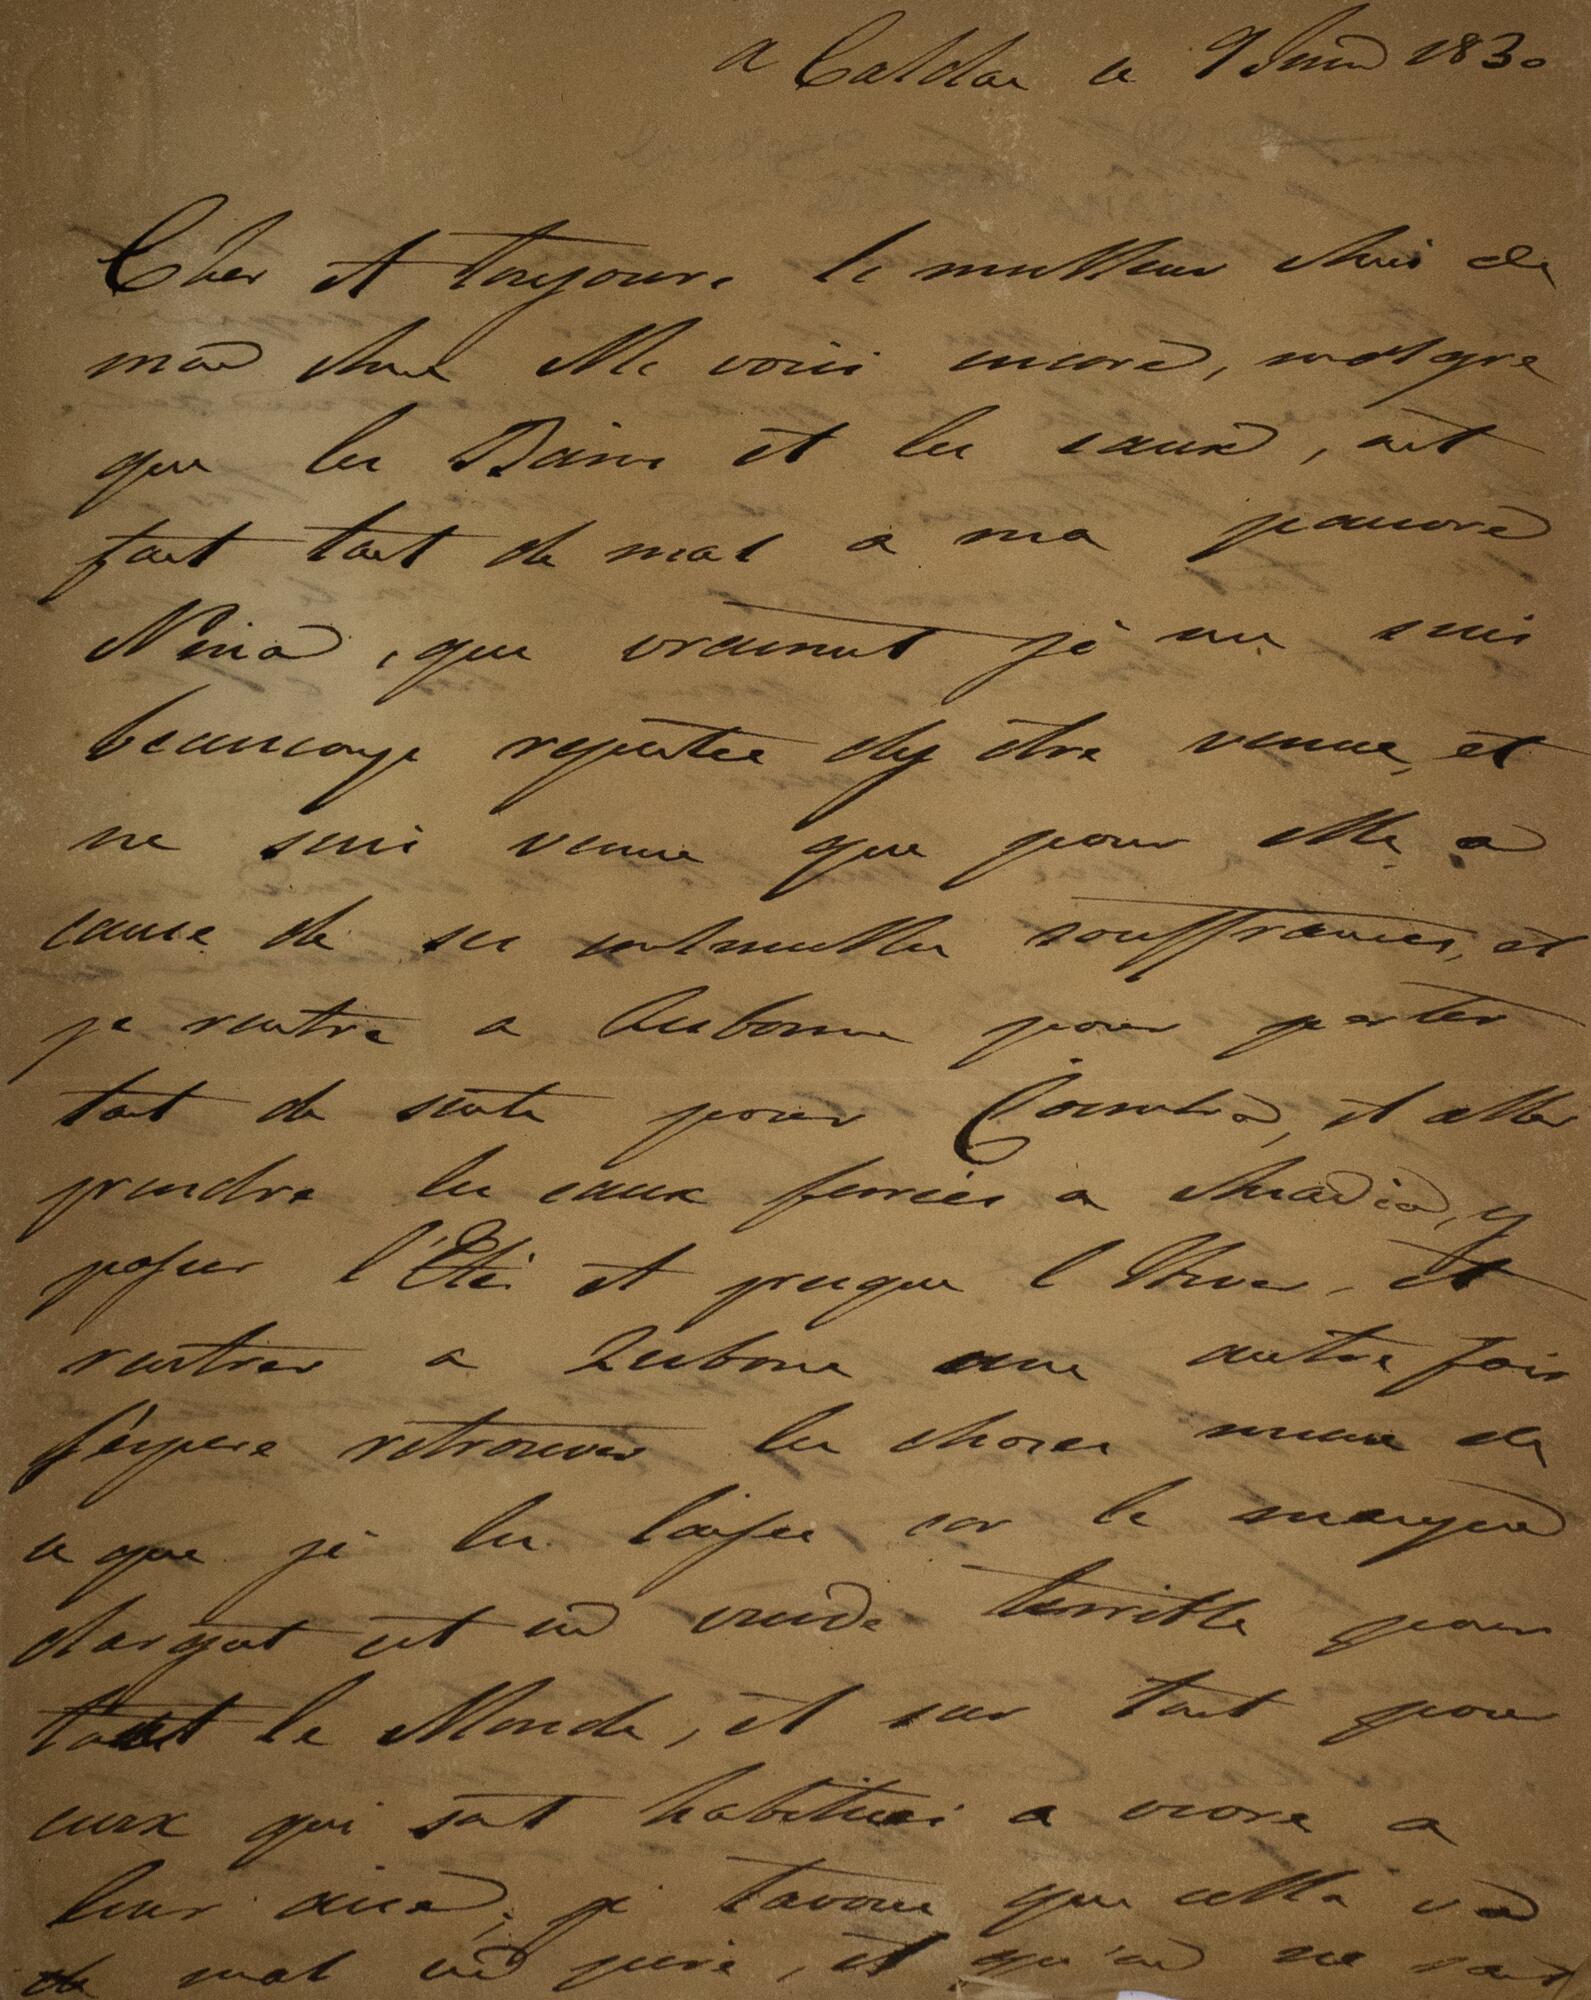 a Caldas ce 9 Juin 1830
Cher et toujours le meilleur Ami de
mon Ame Me voici encore, malgre
que les Bains et les eaux, ait
fait tant de mal a ma pauvre
Nina, que vraiment je me suis
beaucoup repentee dy être venue, et
ne suis venue que pour elle, a
cause de ses souffrances, et
je rentre a Lisbonne pour partir
tout de suite pour Coimbra, et aller
prendre les eaux ferrées a Anadia, y
passer l'Eté et presque l'Hiver, et
rentrer a Lisbonne une autre fois
J'espere retrouver les choses mieux de
ce que je les laisse car le manque
dargent est un vuide terrible pour
tout le Monde, et sur tout pour
ceux qui sont habitués a vivre a
leur aise, je t'avoue que cella va
de mal en pire, et qu'on ne sait